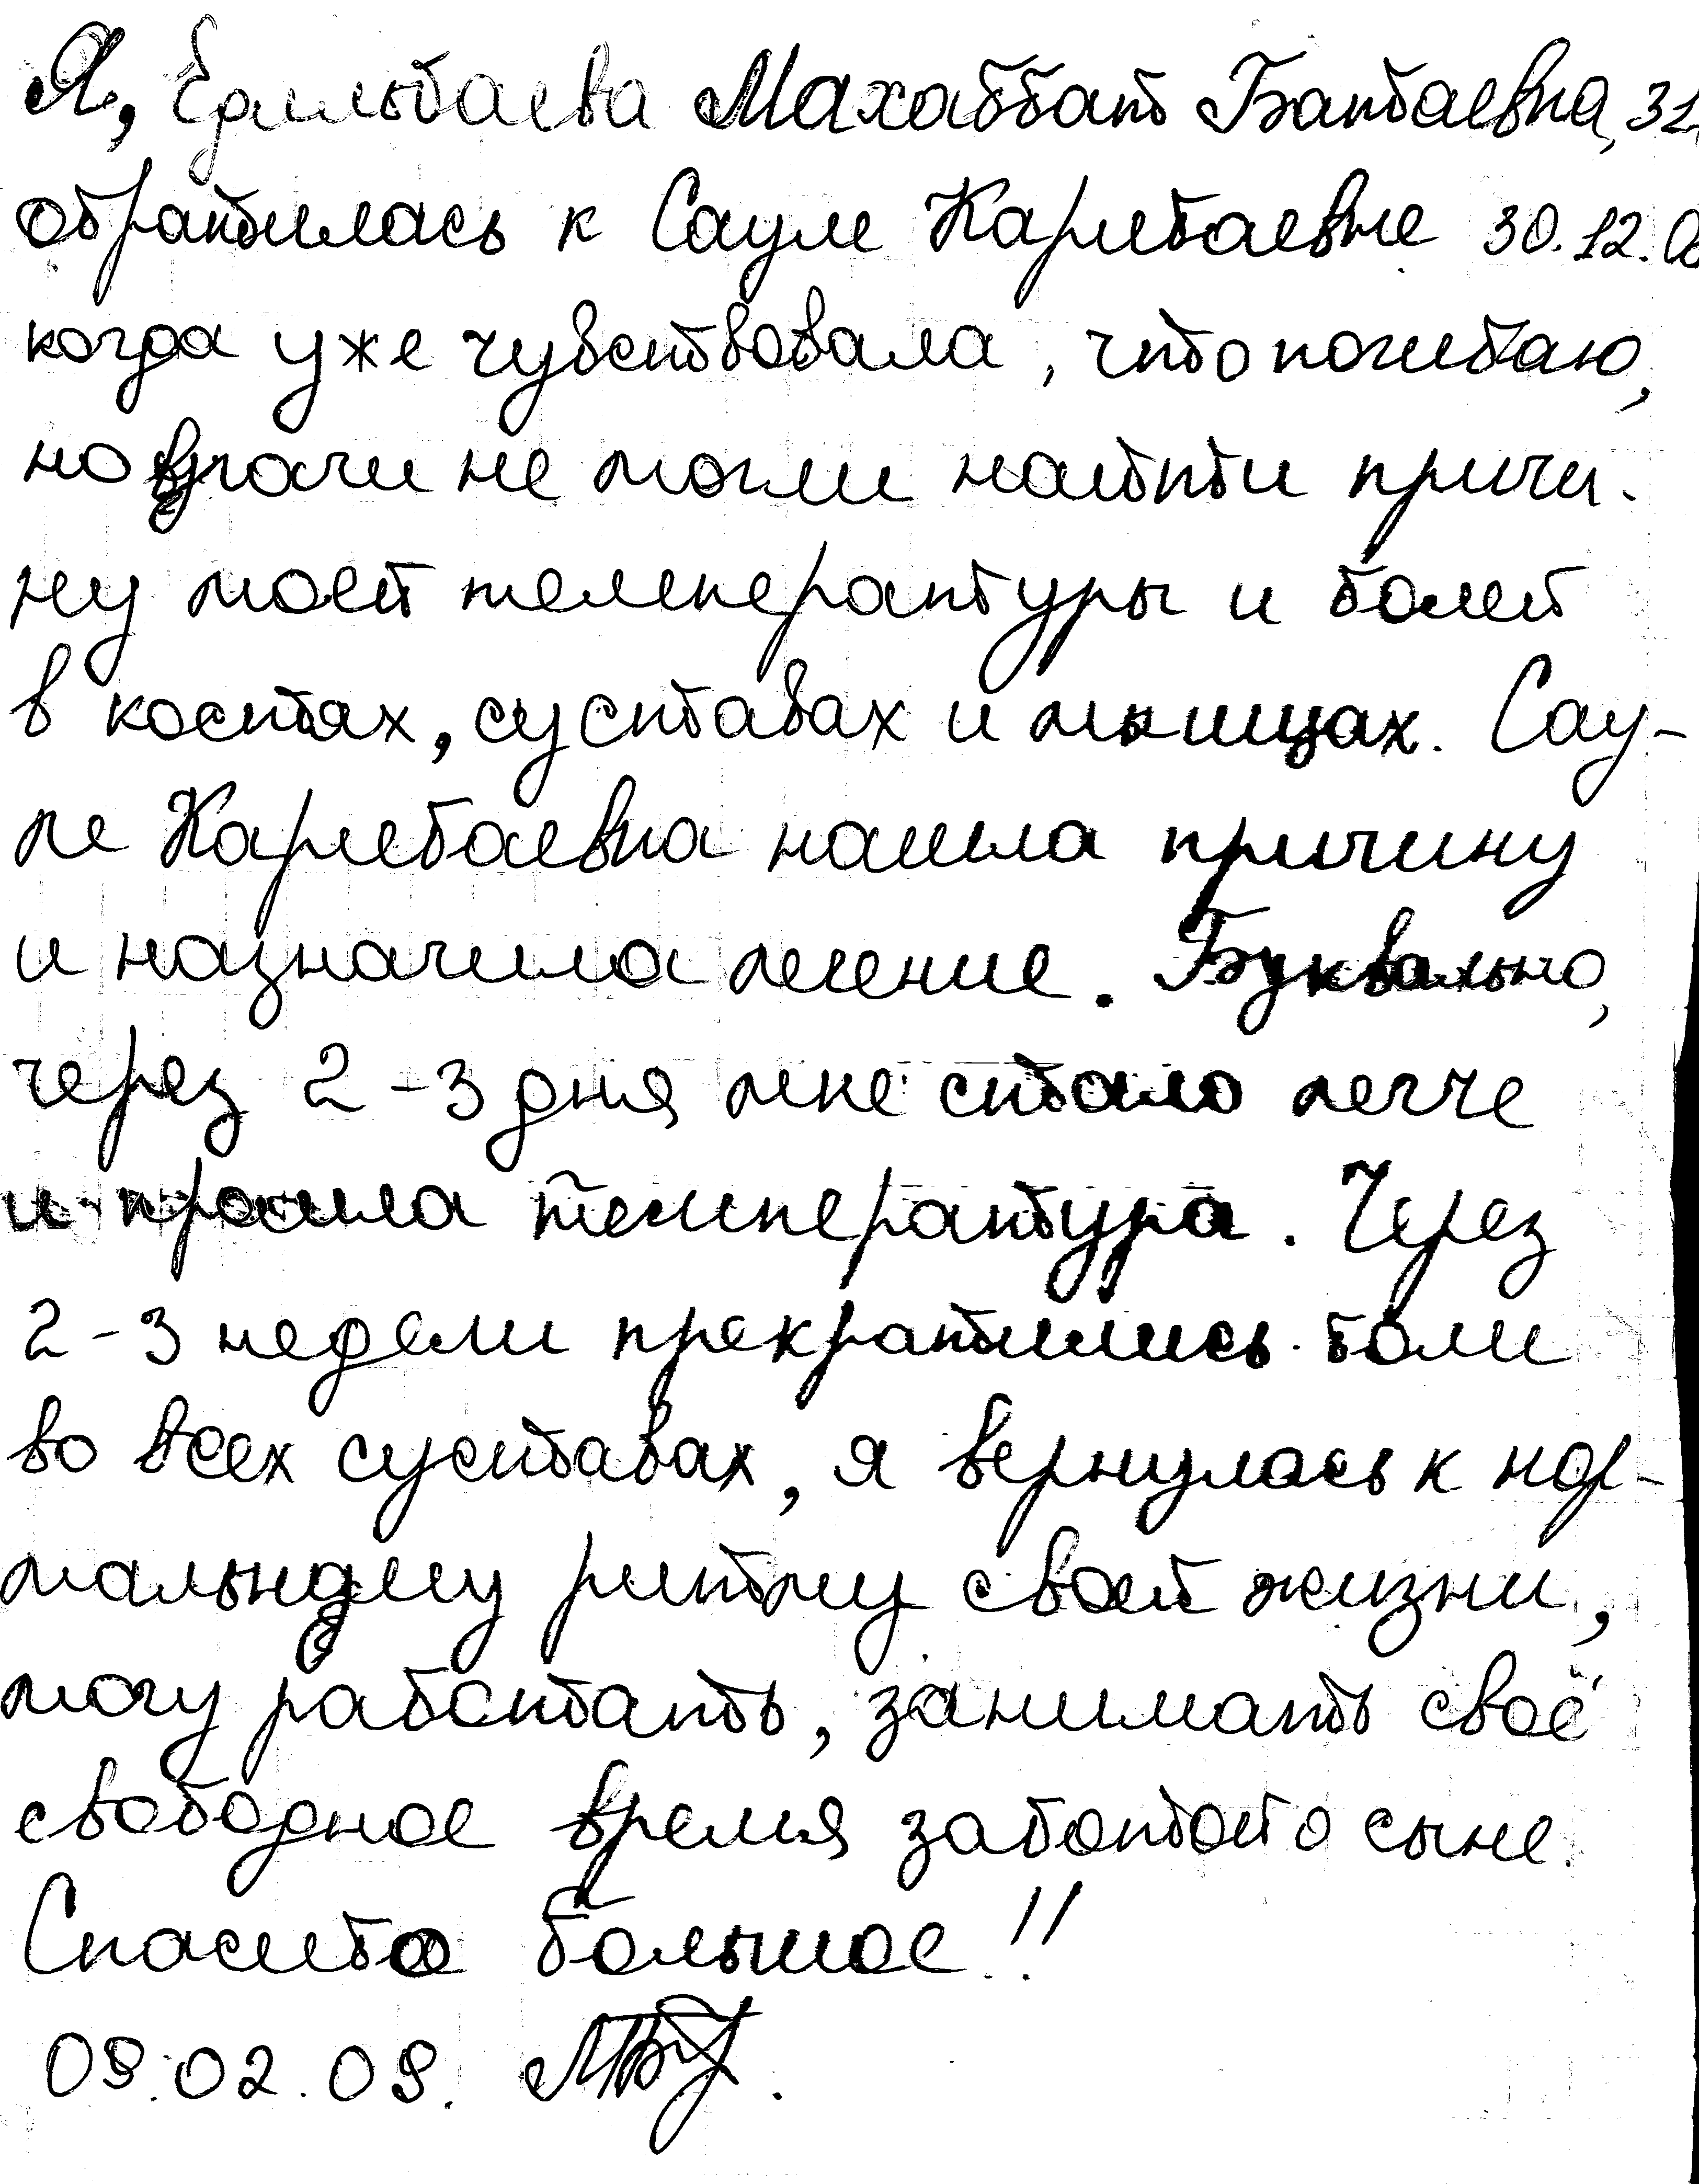 Я, Ермекбаева Махаббат Батбаевна, 31
обратилась к Сауле Карибаевне 30.12.0
когда уже чувствовала, что погибаю,
но врачи не могли найти причи-
ну моей температуры и болей
в костях, суставах и мышцах. Сау-
ле Карибаевна нашла причину
и назначила лечение. Буквально,
через 2-3 дня мне стало легче
и прошла температура. Через
2-3 недели прекратились боли
во всех суставах, я вернулась к нор-
мальному ритму своей жизни,
могу работать, занимать своё
свободное время заботой о сыне.
Спасибо большое!!
09.02.09.